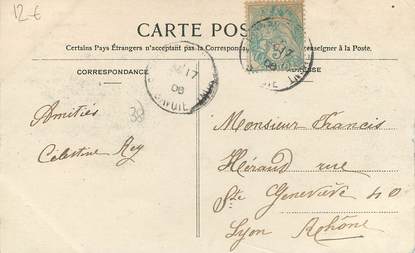 12-€
CARTE POS
Certains Pays Étrangers n'acceptant pas la Correspondan
enseigner à la Poste.
CORRESPONDANCE
RESSE
17
08
SAVOIE
17
08
38
Amitiés
Célestine Rey
Monsieur Francis
Héraud rue
Ste Geneviève 40
Lyon Rhône